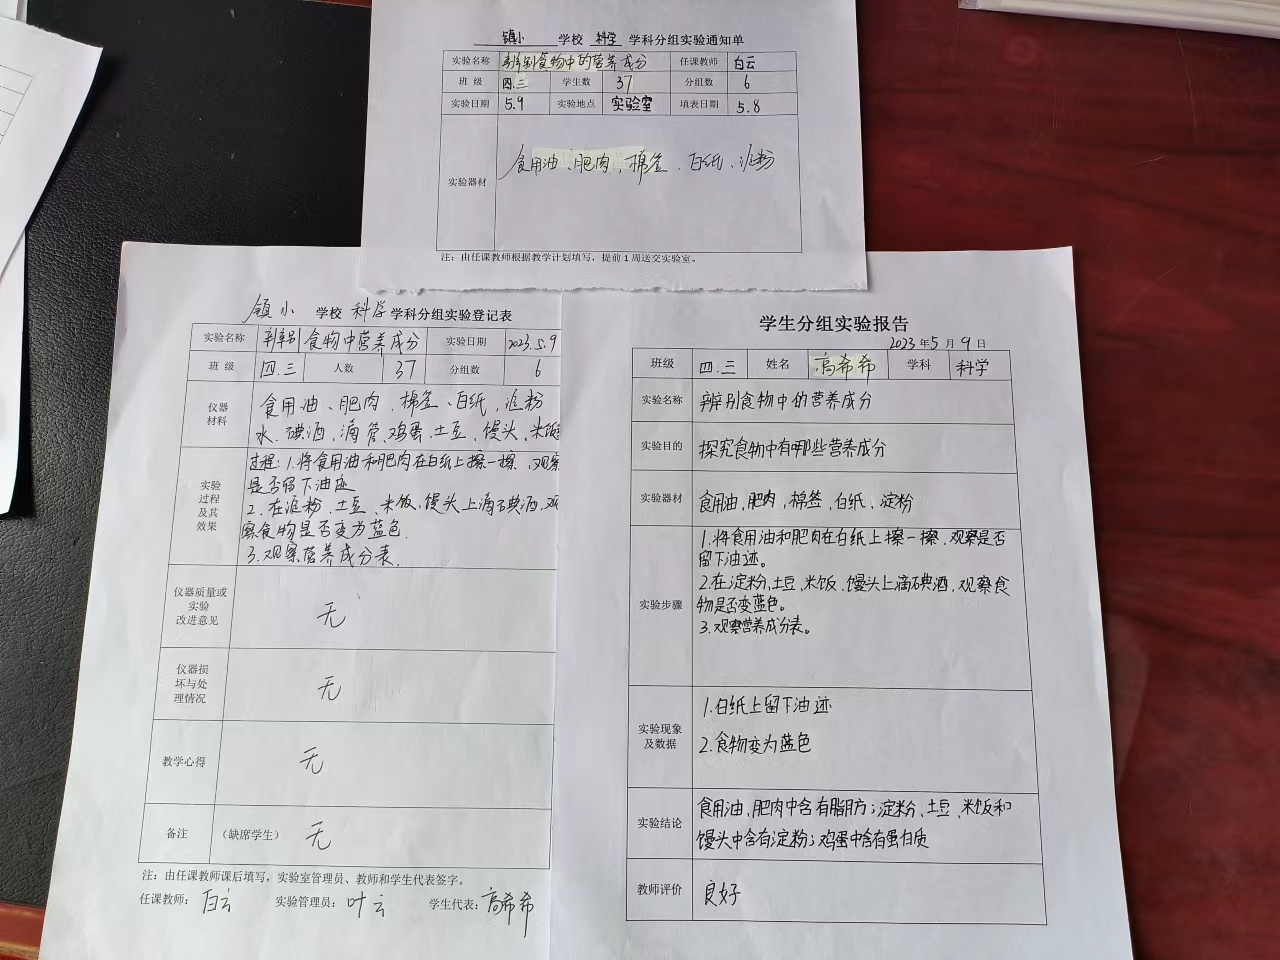 镇小 学校 科学 学科分组实验通知单
实验名称 辨别食物中的营养成分 任课教师 白云
班 级 四.三 学生数 37 分组数 6
实验日期 5.9 实验地点 实验室 填表日期 5.8
实验器材 食用油、肥肉,棉签、白纸、淀粉
注:由任课教师根据教学计划填写,提前1周送交实验室。
镇小 学校 科学 学科分组实验登记表
实验名称 辨别食物中营养成分 实验日期 2023.5.9
班 级 四.三 人数 37 分组数 6
仪器
材料
食用油、肥肉,棉签、白纸,淀粉
水.碘酒,滴管,鸡蛋.土豆、馒头、米饭
实验
过程
及其
效果
过程:1.将食用油和肥肉在白纸上擦一擦,观察
是否留下油迹
2.在淀粉、土豆、米饭、馒头上滴碘酒,观
察食物是否变为蓝色.
3.观察营养成分表.
仪器质量或
实验
改进意见
无
仪器损
坏与处
理情况
无
教学心得 无
备注 (缺席学生) 无
注:由任课教师课后填写,实验室管理员、教师和学生代表签字。
任课教师: 白云 实验管理员: 叶云 学生代表: 高希希
学生分组实验报告
2023 年 5 月 9 日
班级 四.三 姓名 高希希 学科 科学
实验名称 辨别食物中的营养成分
实验目的 探究食物中有哪些营养成分
实验器材 食用油,肥肉,棉签,白纸,淀粉
实验步骤
1.将食用油和肥肉在白纸上擦一擦,观察是否
留下油迹。
2.在淀粉、土豆、米饭、馒头上滴碘酒,观察食
物是否变蓝色。
3.观察营养成分表。
实验现象
及数据
1.白纸上留下油迹
2.食物变为蓝色
实验结论
食用油、肥肉中含有脂肪;淀粉、土豆、米饭和
馒头中含有淀粉;鸡蛋中含有蛋白质
教师评价 良好